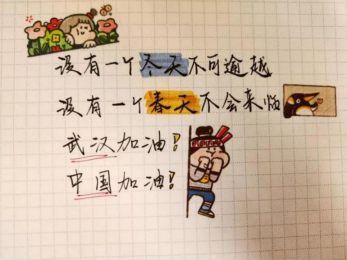 没有一个冬天不可逾越
没有一个春天不会来临
武汉加油!
中国加油!